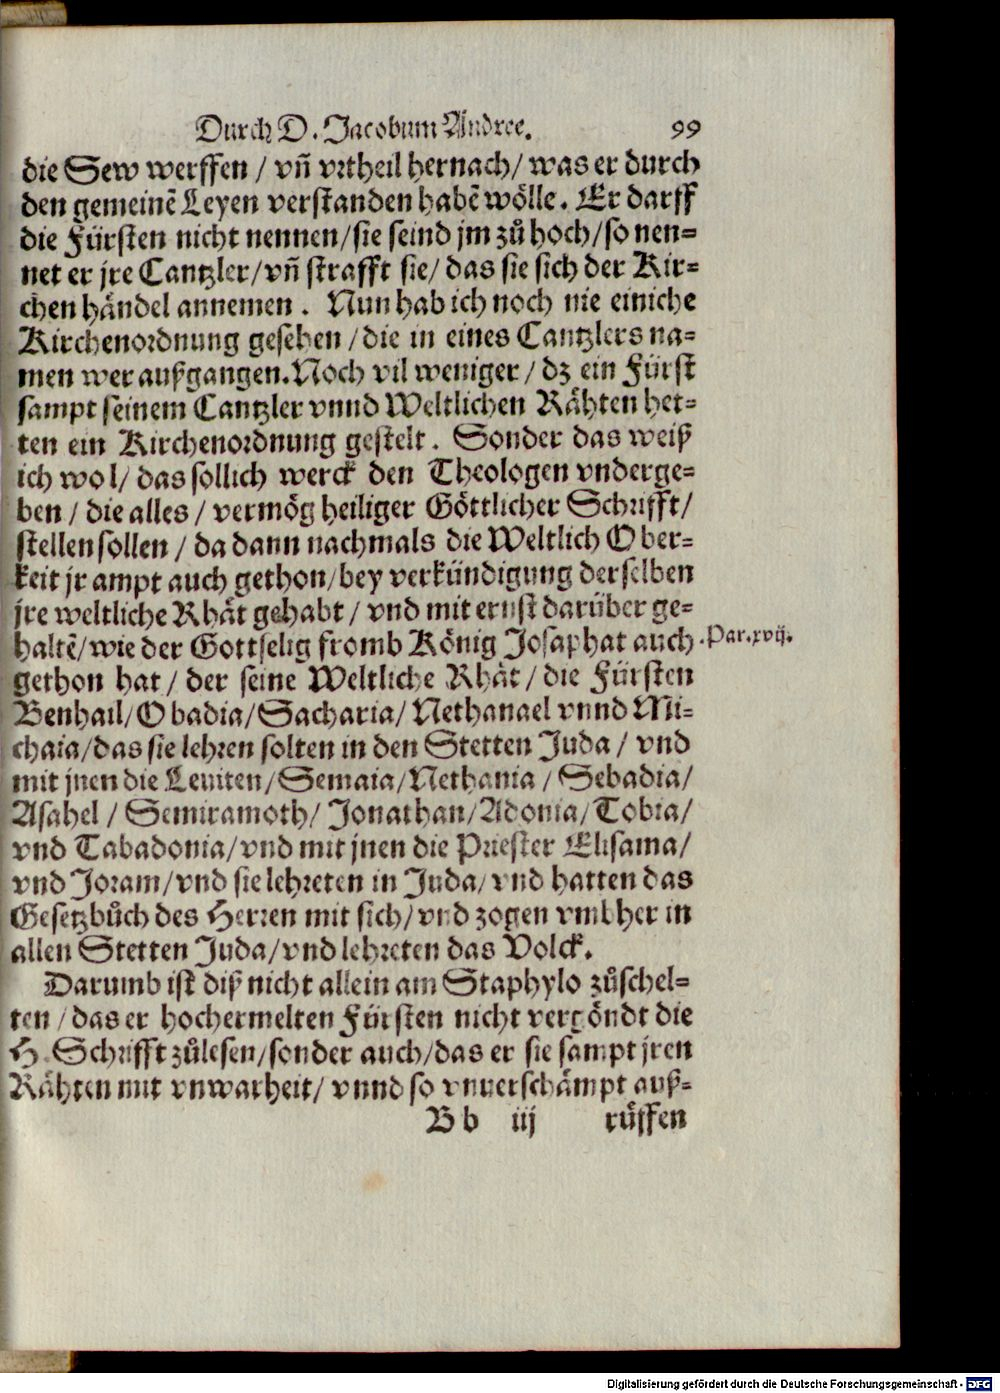 Durch D. Jacobum Andree. 99
die Sew werffen / vñ vrtheil hernach / was er durch
den gemeinẽ Leyen verstanden habẽ wölle. Er darff
die Fürsten nicht nennen / sie seind jm zů hoch / so nen=
net er jre Cantzler / vñ strafft sie / das sie sich der Kir=
chen händel annemen. Nun hab ich noch nie einiche
Kirchenordnung gesehen / die in eines Cantzlers na=
men wer außgangen. Noch vil weniger / dz ein Fürst
sampt seinem Cantzler vnnd Weltlichen Rähten het=
ten ein Kirchenordnung gestelt. Sonder das weiß
ich wol / das sollich werck den Theologen vnderge=
ben / die alles / vermög heiliger Göttlicher Schrifft /
stellen sollen / da dann nachmals die Weltlich Ober=
keit jr ampt auch gethon / bey verkündigung derselben
jre weltliche Rhät gehabt / vnd mit ernst darüber ge=
haltẽ / wie der Gottselig fromb König Josaphat auch
. Par. xvij.
gethon hat / der seine Weltliche Rhät / die Fürsten
Benhail / Obadia / Sacharia / Nethanael vnnd Mi=
chaia / das sie lehren solten in den Stetten Juda / vnd
mit jnen die Leuiten / Semaia / Nethania / Sebadia /
Asahel / Semiramoth / Jonathan / Adonia / Tobia /
vnd Tabadonia / vnd mit jnen die Priester Elisama /
vnd Joram / vnd sie lehreten in Juda / vnd hatten das
Gesetzbůch des Herren mit sich / vnd zogen vmbher in
allen Stetten Juda / vnd lehreten das Volck.
Darumb ist diß nicht allein am Staphylo zůschel=
ten / das er hochermelten Fürsten nicht vergöndt die
H. Schrifft zůlesen / sonder auch / das er sie sampt jren
Rähten mit vnwarheit / vnnd so vnuerschämpt auß=
Bb iij rüffen
Digitalisierung gefördert durch die Deutsche Forschungsgemeinschaft - DFG